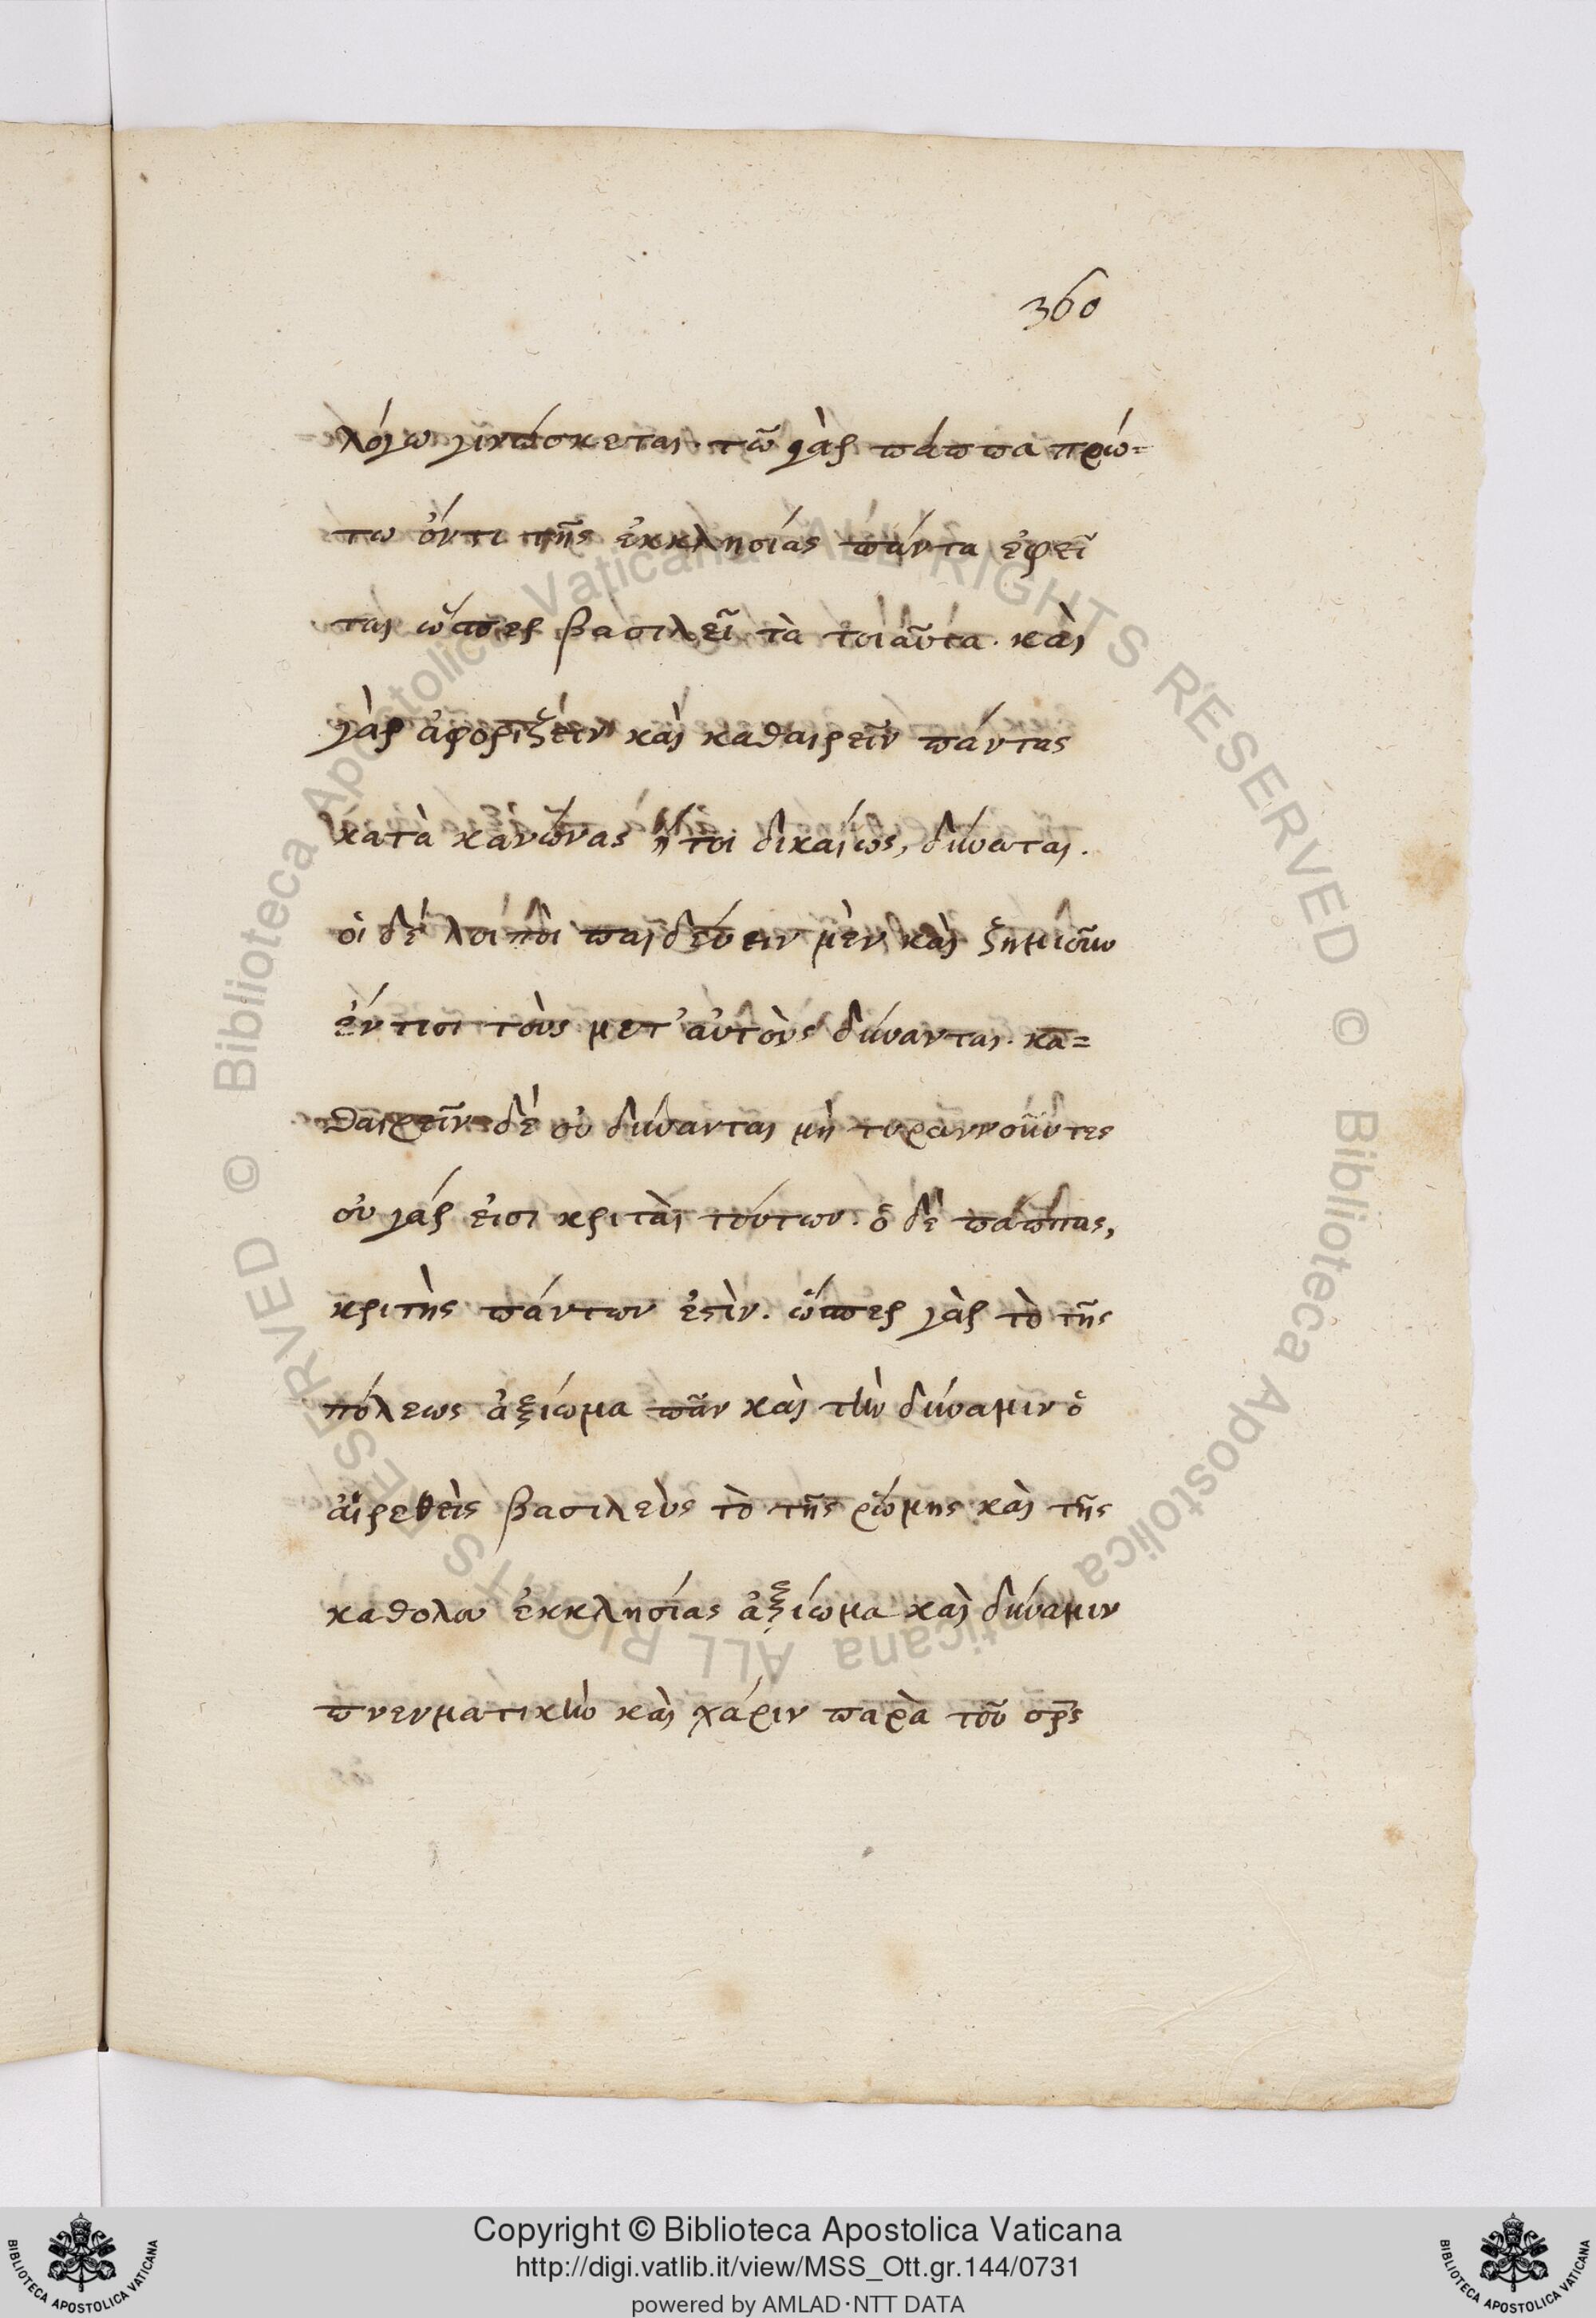 360
λόγω γινώσκεται· τῶ γὰρ πάππα πρώ=
τω ὄντι τῆς ἐκκλησίας πάντα ἐφεῖ
ται ὥσπερ βασιλεῖ τὰ τοιαῦτα. καὶ
γὰρ ἀφορίζειν καὶ καθαιρεῖν πάντας
κατὰ κανῶνας ἤτοι δικαίως, δύναται.
οἱ δὲ λοιποὶ παιδεύειν μὲν καὶ ζημιοῦν
ἔν τισι τοὺς μετ' αὐτοὺς δύνανται. κα=
θαιρεῖν δὲ οὐ δύνανται μὴ τυραννοῦντες
οὐ γάρ εἰσι κριταὶ τούτων. ὁ δὲ πάππας,
κριτὴς πάντων ἐστίν. ὥσπερ γὰρ τὸ τῆς
πόλεως ἀξίωμα πᾶν καὶ τὴν δύναμιν ὁ
αἱρεθεὶς βασιλεὺς τὸ τῆς ῥώμης καὶ τῆς
καθόλου ἐκκλησίας ἀξίωμα καὶ δύναμιν
πνευματικὴν καὶ χάριν παρὰ τοῦ σρ̅ς
© Biblioteca Apostolica Vaticana ALL RIGHTS RESERVED © Biblioteca Apostolica Vaticana ALL RIGHTS RESERVED
BIBLIOTECA APOSTOLICA VATICANA
Copyright © Biblioteca Apostolica Vaticana
http://digi.vatlib.it/view/MSS_Ott.gr.144/0731
powered by AMLAD·NTT DATA
BIBLIOTECA APOSTOLICA VATICANA